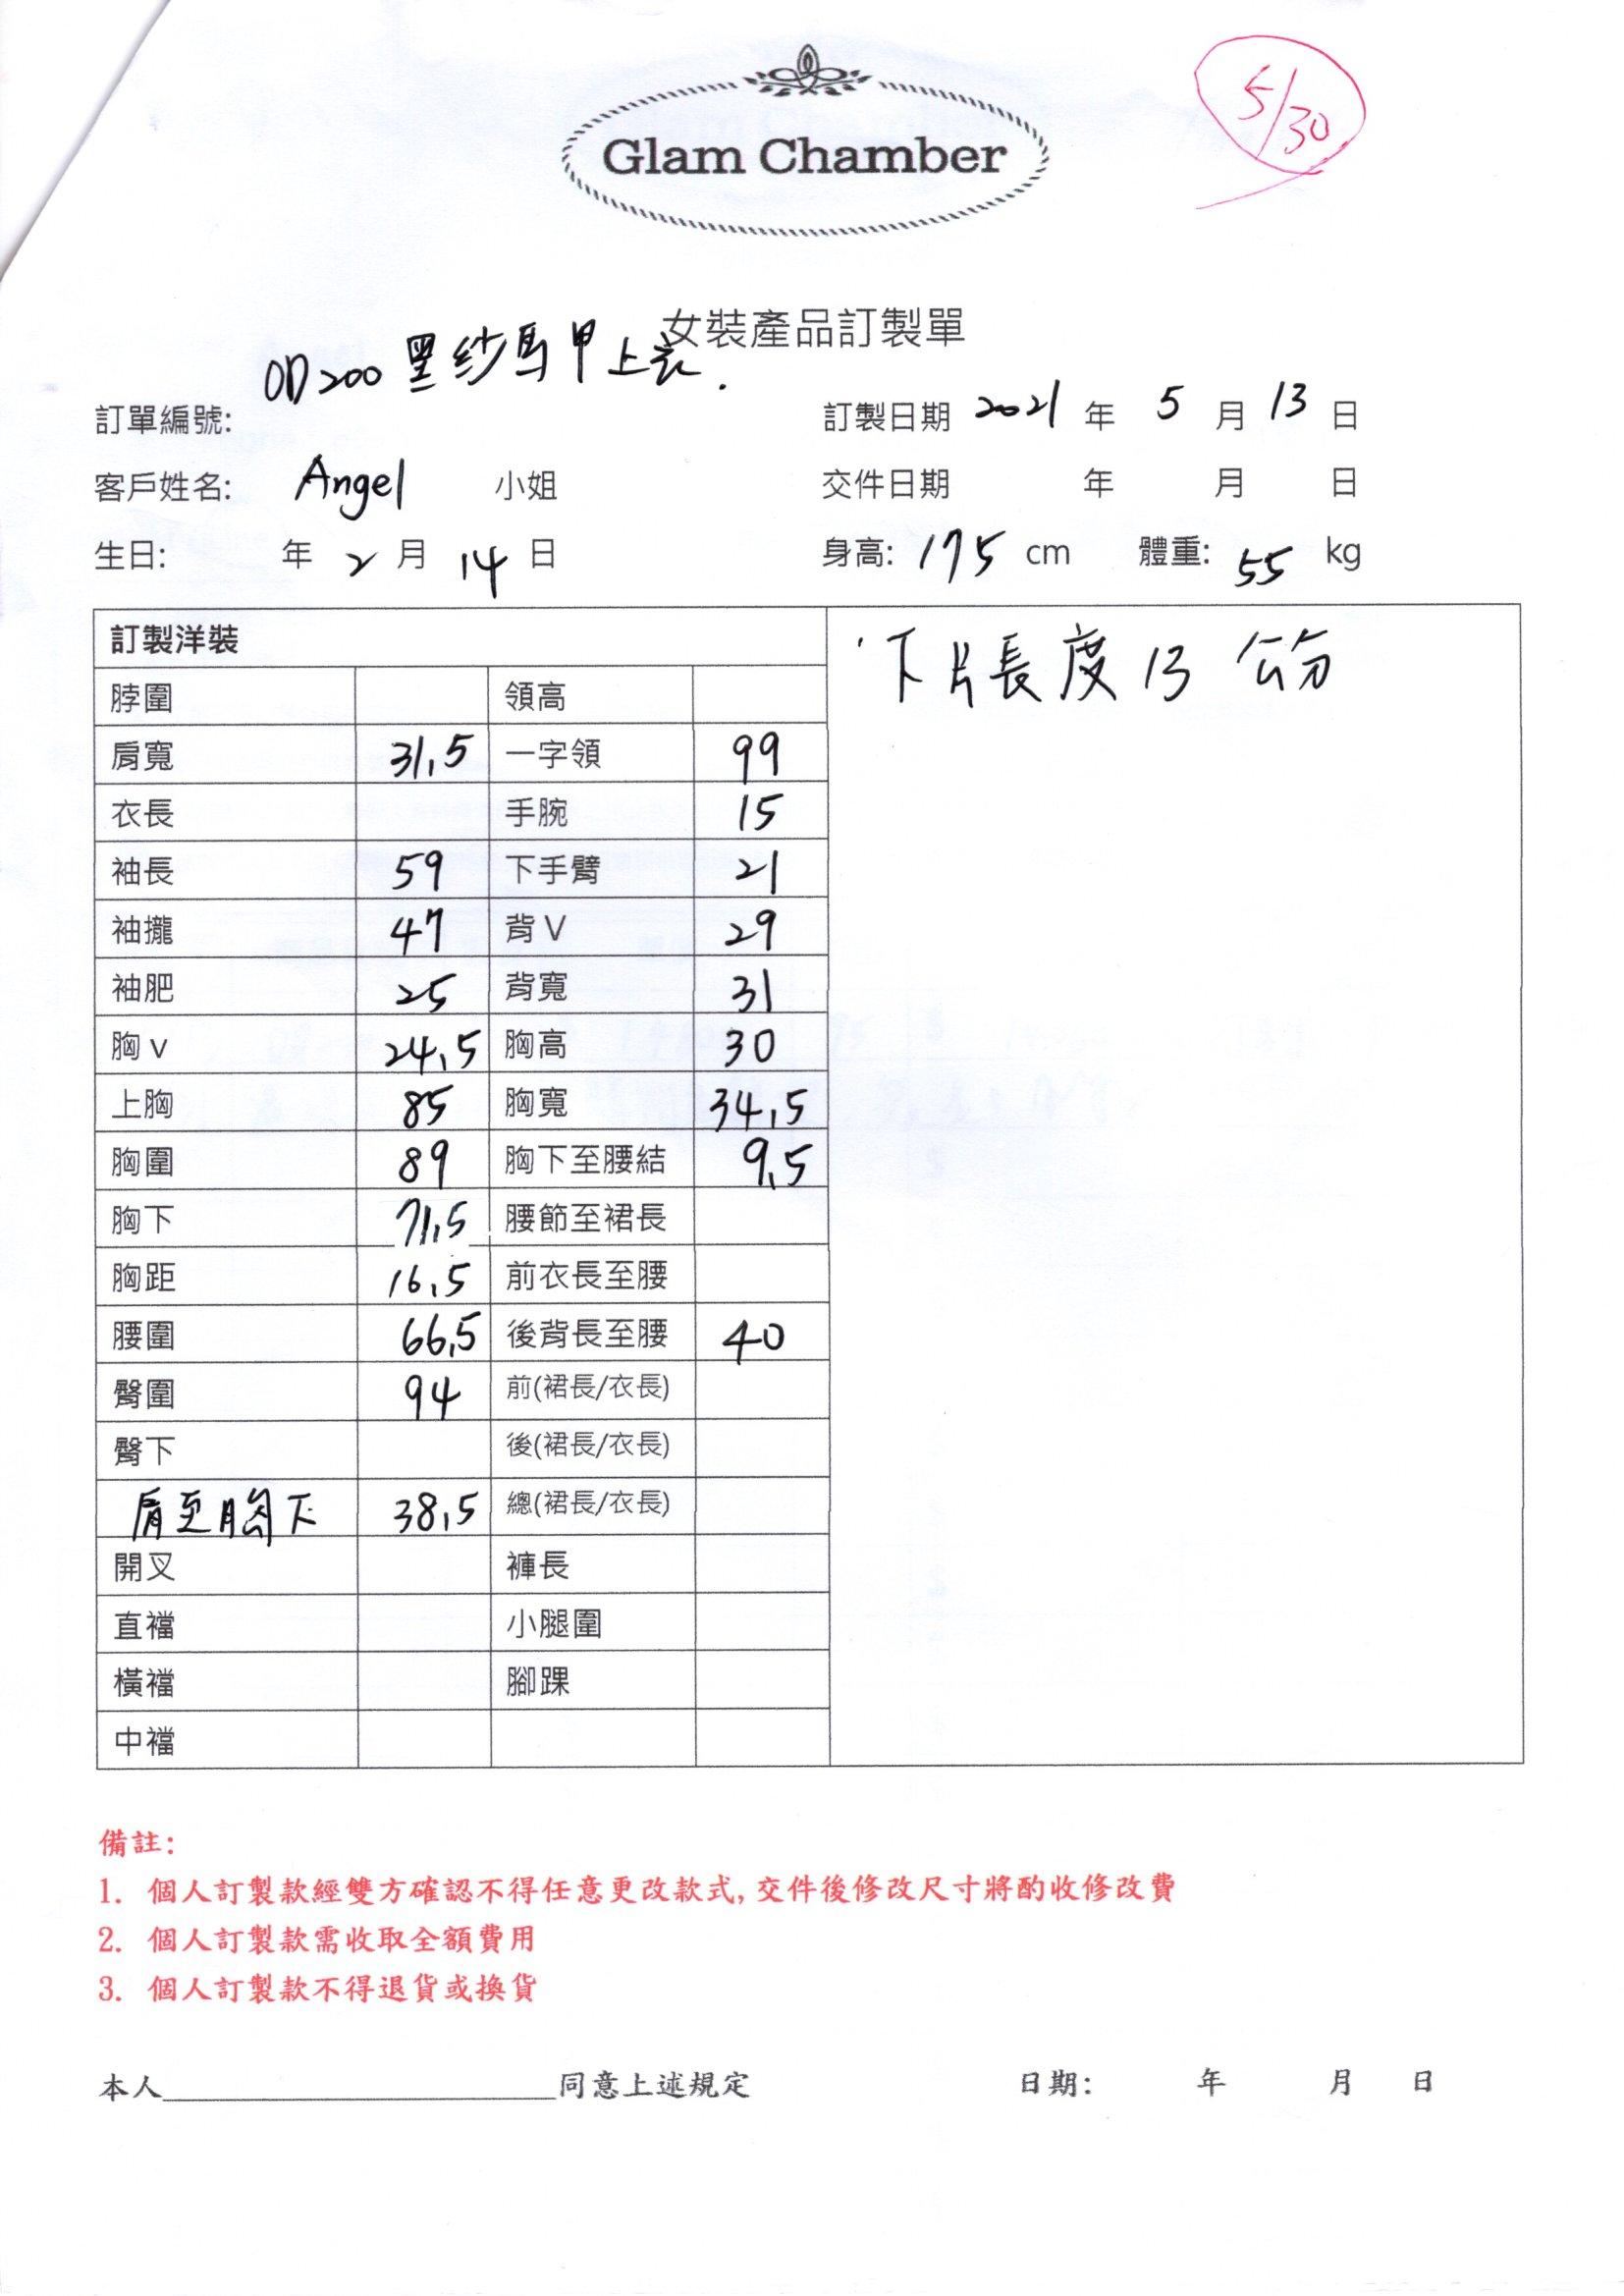 5/30
Glam Chamber
女裝產品訂製單
OD200 黑紗馬甲上衣.
訂單編號: 訂製日期 2021 年 5 月 13 日
客戶姓名: Angel 小姐 交件日期 年 月 日
生日: 年 2 月 14 日 身高: 175 cm 體重: 55 kg
訂製洋裝 下片長度 13 公分
脖圍 領高
肩寬 31,5 一字領 99
衣長 手腕 15
袖長 59 下手臂 21
袖攏 47 背V 29
袖肥 25 背寬 31
胸v 24,5 胸高 30
上胸 85 胸寬 34,5
胸圍 89 胸下至腰結 9,5
胸下 71,5 腰節至裙長
胸距 16,5 前衣長至腰
腰圍 66,5 後背長至腰 40
臀圍 94 前(裙長/衣長)
臀下 後(裙長/衣長)
肩至胸下 38,5 總(裙長/衣長)
開叉 褲長
直襠 小腿圍
橫襠 腳踝
中襠
備註:
1. 個人訂製款經雙方確認不得任意更改款式, 交件後修改尺寸將酌收修改費
2. 個人訂製款需收取全額費用
3. 個人訂製款不得退貨或換貨
本人________________同意上述規定 日期: 年 月 日